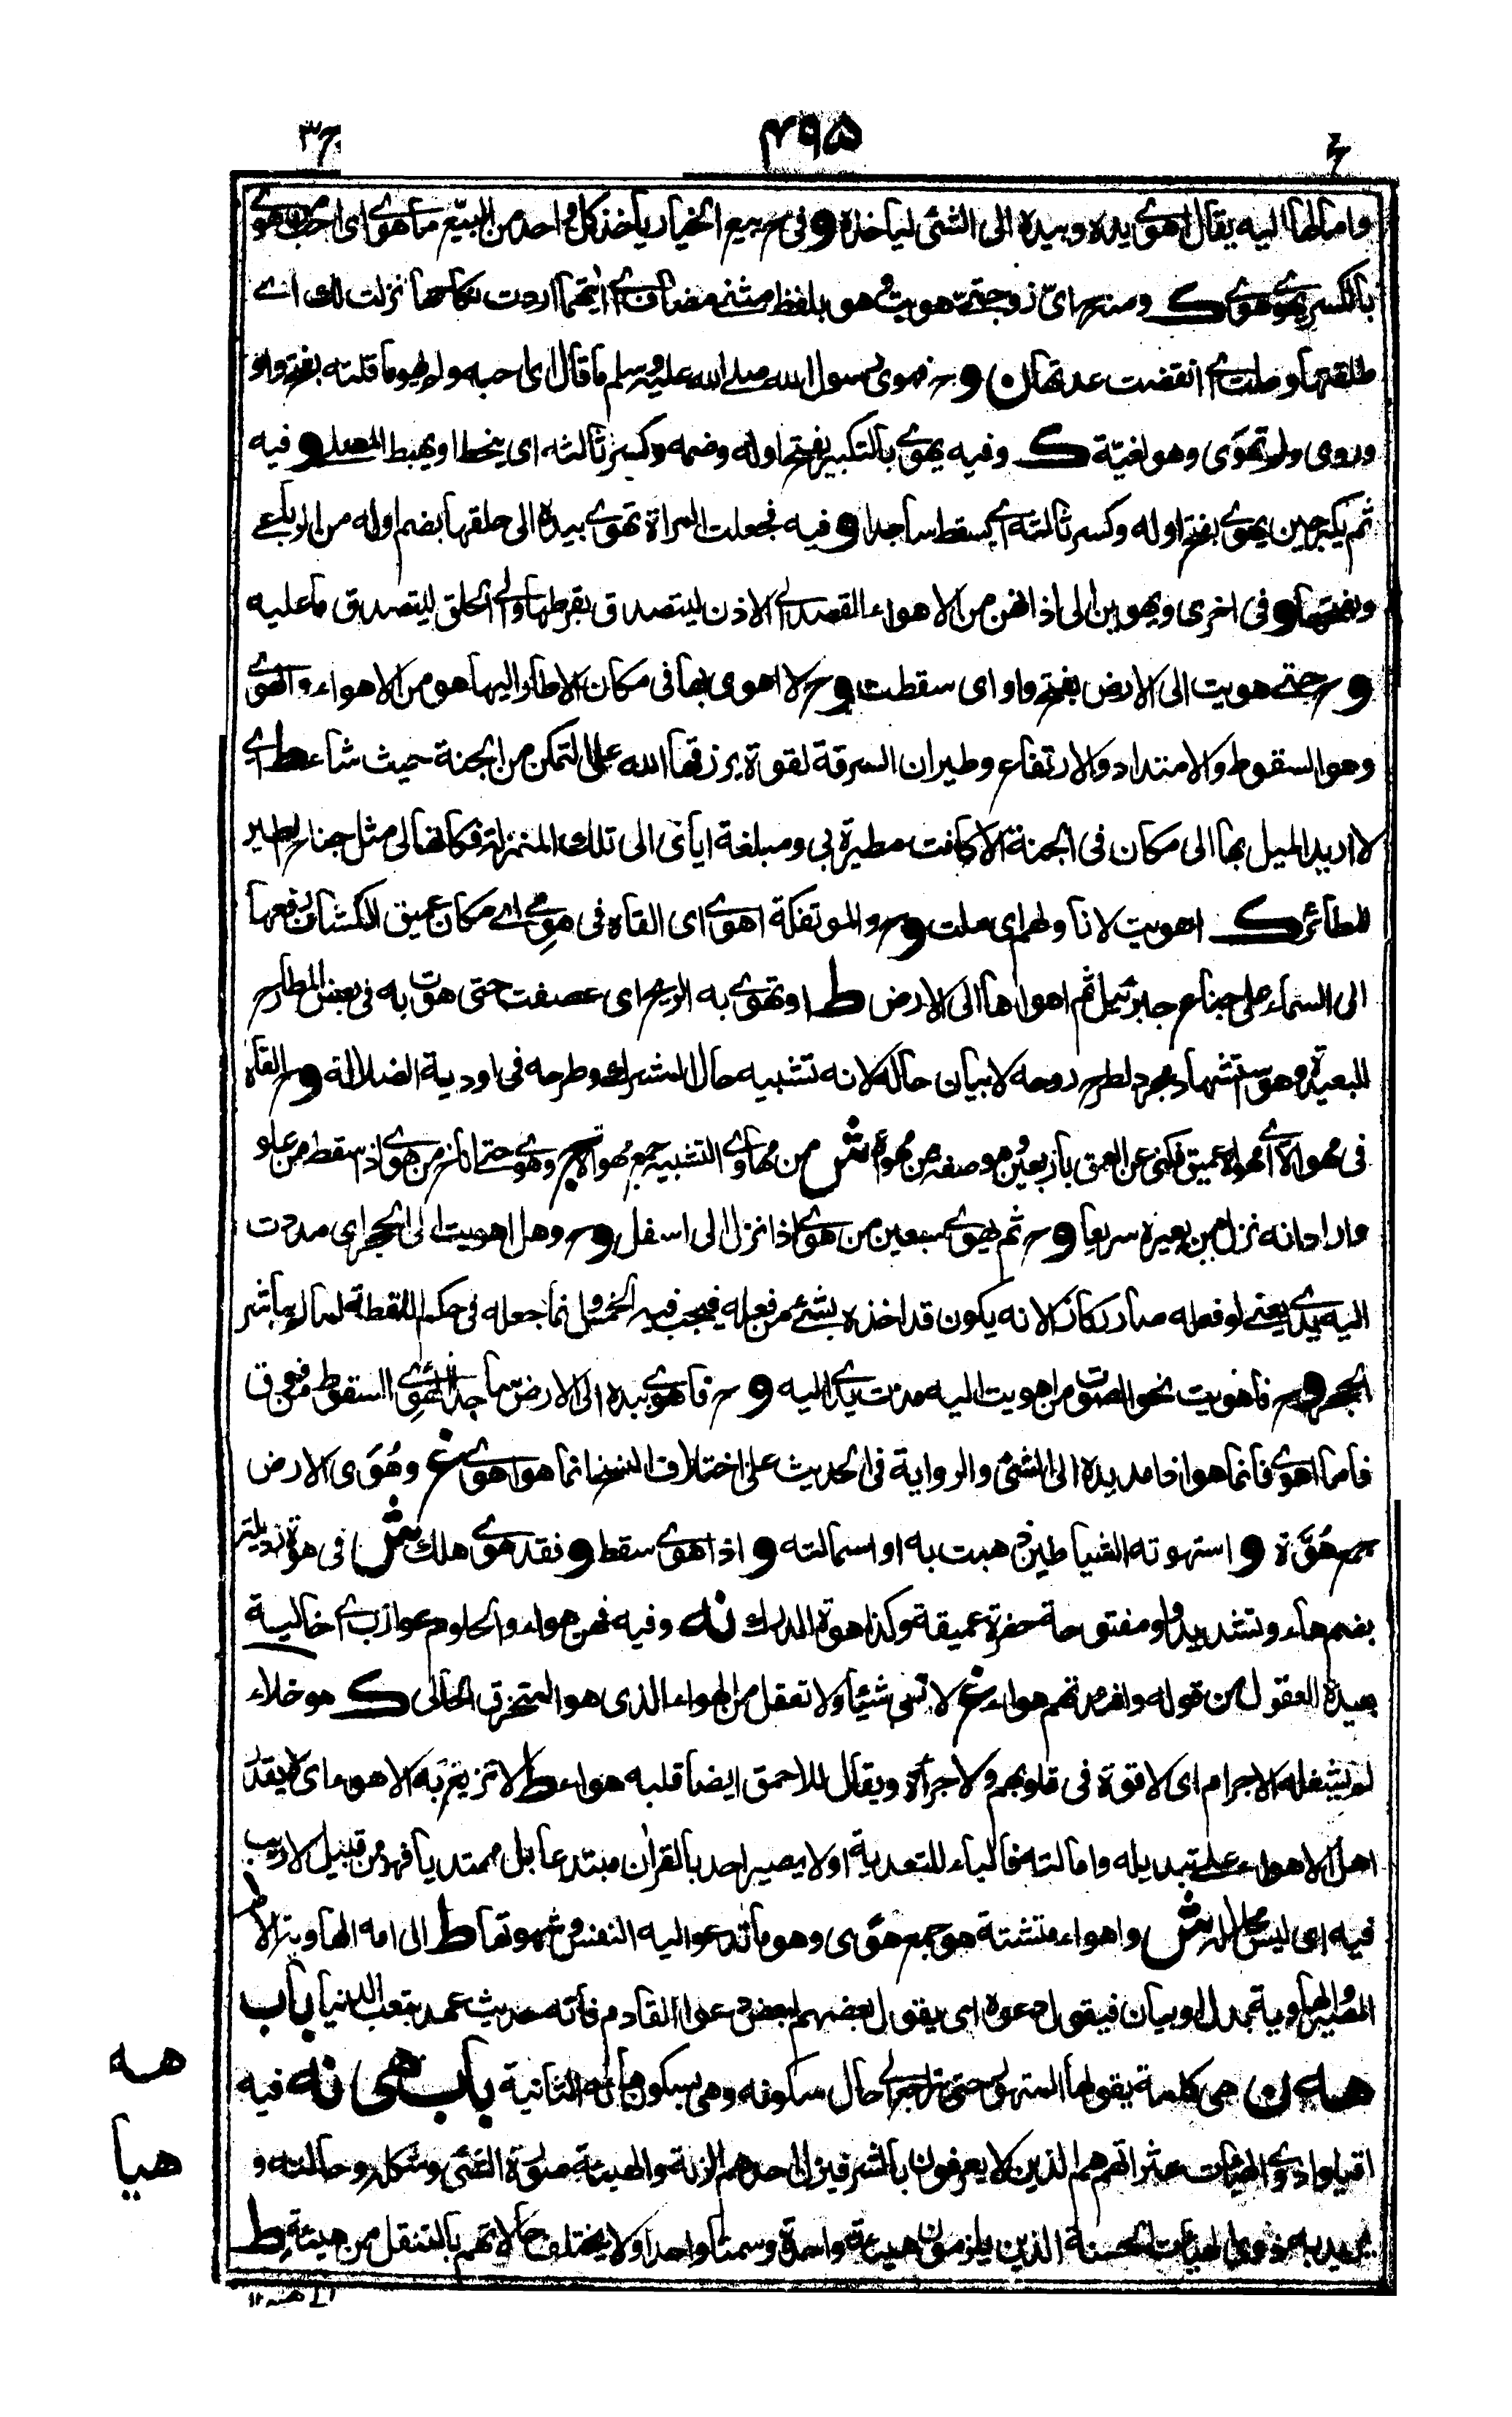 ج٣ ٤٩٥
واما لها اليه يقال اهوى يده وبيده الى الشئ لياخذه و فى ح بيع الخيار ياخذ كل واحد من البيع ما هوى اى احب من هوى
بالكسر يهوى هوى ك ومنه ح اى زوجتى هويت هو بلفظ مثنى مضاف اى ايتهما اردت نكاحها نزلت لك اى
طلقتها وحلت اى انقضت عدتها ن و ح فهوى رسول الله صلى الله عليه وسلم ما قال اى احبه ولم يهو ما قلته بفتح واو
وروى ولم تهوى وهو لغية ك وفيه يهوى بالتكبير بفتح اوله وضمه وكسر ثالثه اى ينحط او يهبط و فيه
ثم يكبر حين يهوى بفتح اوله وكسر ثالثه اى يسقط ساجدا و فيه فجعلت المراة تهوى بيده الى حلقها بضم اوله من الرباعى
وبفتحها و فى اخرى ويهوين الى اذانهن من الاهواء القصد اى الى الاذن ليتصدق بقرطها والى الحلق ليتصدق ما عليه
و ح حتى هويت الى الارض بفتح واو اى سقطت و ح لا اهوى بها فى مكان الا طار اليها هو من الاهواء والهوى
وهو السقوط والامتداد والارتفاع وطيران السرقة لقوة يرزقها الله على التمكن من الجنة حيث شاء ط اى
لا اريد الميل بها الى مكان فى الجنة الا كانت مطيرة بى ومبلغة اياى الى تلك المنزلة فكانها لى مثل جناح الطير
للطائر ك اهويت لاناولهم اى ملت و ح والموتفكة اهوى اى القاه فى هوى اى مكان عميق الكشاف رفعها
الى السماء على جناح جبرئيل ثم اهواها الى الارض ط او تهوى به الريح اى عصفت حتى هوت به فى بعض المطارح
البعيدة وهو استشهاد بمجرد لطرح روحه لا بيان حاله لانه تشبيه حال المشرك وطرحه فى اودية الضلالة و ح القاه
فى مهواة اى مهواة عميق فكنى عن العمق باربعين هو صفة من مهواة ش من مهاوى التشبيه جمع مهواة ج وهوى حتى اناخ من هوى اذا سقط من علو
واراد انه نزل من بعيره سريعا و ح ثم يهوى سبعين من هوى اذا نزل الى اسفل و ح وهل اهويت الى الجحر اى مددت
اليه يدى يعنى لو فعله صار ركازا لانه يكون قد اخذه بشئ من فعله فيجب فيه الخمس وانما جعله فى حكم اللقطة لما لم يباشر
الجحر و ح فاهويت نحو الصوت من اهويت اليه مددت يدى اليه و ح فاهوى بيده الى الارض ساجدا الهوى السقوط من فوق
فاما اهوى فانما هو اذا مد يده الى الشئ والرواية فى الحديث على اختلاف النسخ انما هو اهوى غ وهوى الارض
جمع هوة و استهوته الشياطين ذهبت به او استمالته و اذا هوى سقط و فقد هوى هلك ش فى هوة
بضم هاء وتشديد واو مفتوحة حفرة عميقة وكذا هوة الدرك نه وفيه فهن هواء والحلوم عوازب اى خالية
بعيدة العقول من قوله وافئدتهم هواء غ لا تعى شيئا ولا تعقل من الهواء الذى هو المتخرق الخالى ك هو خلاء
لم يشغله الاجرام اى لا قوة فى قلوبهم ولا جرأة ويقال للاحمق ايضا قلبه هواء ط لا تزيغ به الاهواء اى لا يقدر
اهل الاهواء على تبديله وامالته فالباء للتعدية او لا يصير احد بالقران مبتدعا بل مهتديا فهو من قبيل لا ريب
فيه اى ليس محلا له ش واهواء متشتة هو جمع هوى وهو ما تدعو اليه النفس وشهوتها ط الى امه الهاوية الام
المصير والهاوية بدل او بيان فيقول دعوه اى يقول بعضهم لبعض دعوا القادم فانه حديث عهد بتعب الدنيا باب
هه ن هى كلمة يقولها المنهول حتى تراجع الى حال سكونه وهى بسكون هائه الثانية باب هى نه فيه
هه
اقيلوا ذوى الهيئات عثراتهم هم الذين لا يعرفون بالشر فيزل احدهم الزلة والهيئة صورة الشئ وشكله وحالته و
هيأ
يريد به ذوى الهيئات الحسنة الذين يلزمون هيئة واحدة وسمتا واحدا ولا يختلف حالاتهم بالتنقل من هيئة ط